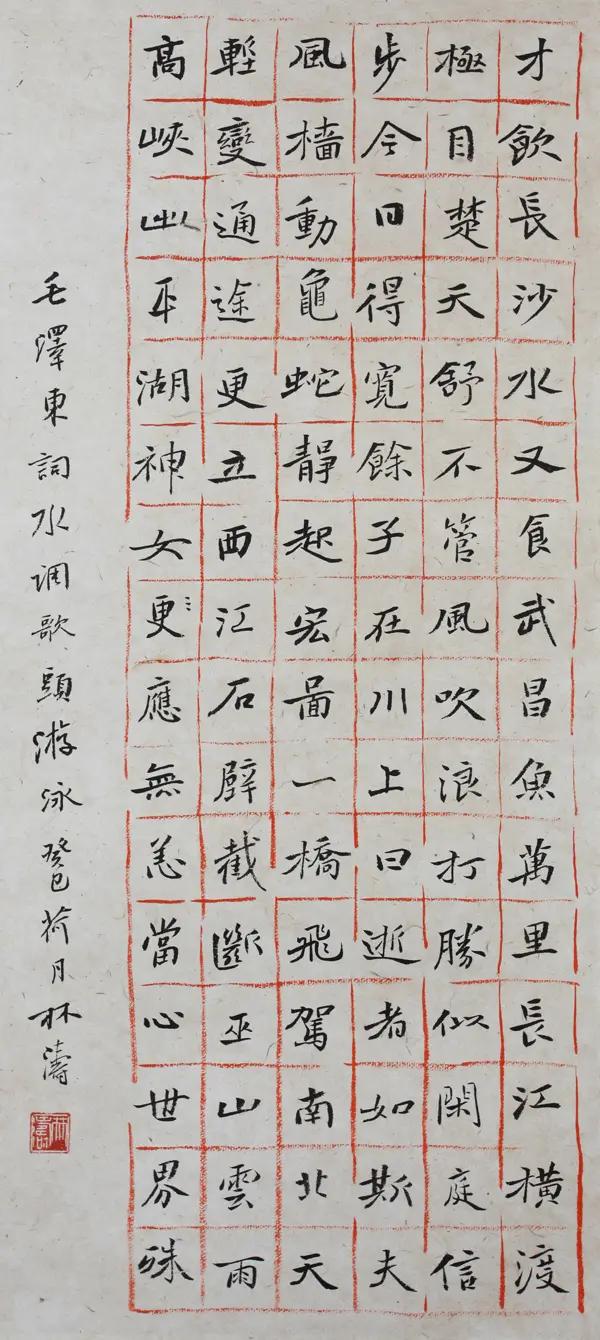 才飲長沙水又食武昌魚萬里長江橫渡
極目楚天舒不管風吹浪打勝似閑庭信
步今日得寬餘子在川上曰逝者如斯夫
風檣動龜蛇靜起宏啚一橋飛駕南北天
塹變通途更立西江石壁截斷巫山雲雨
高峽出平湖神女更應無恙當心世界殊
毛澤東詞水调歌頭游泳癸巳荷月林濤